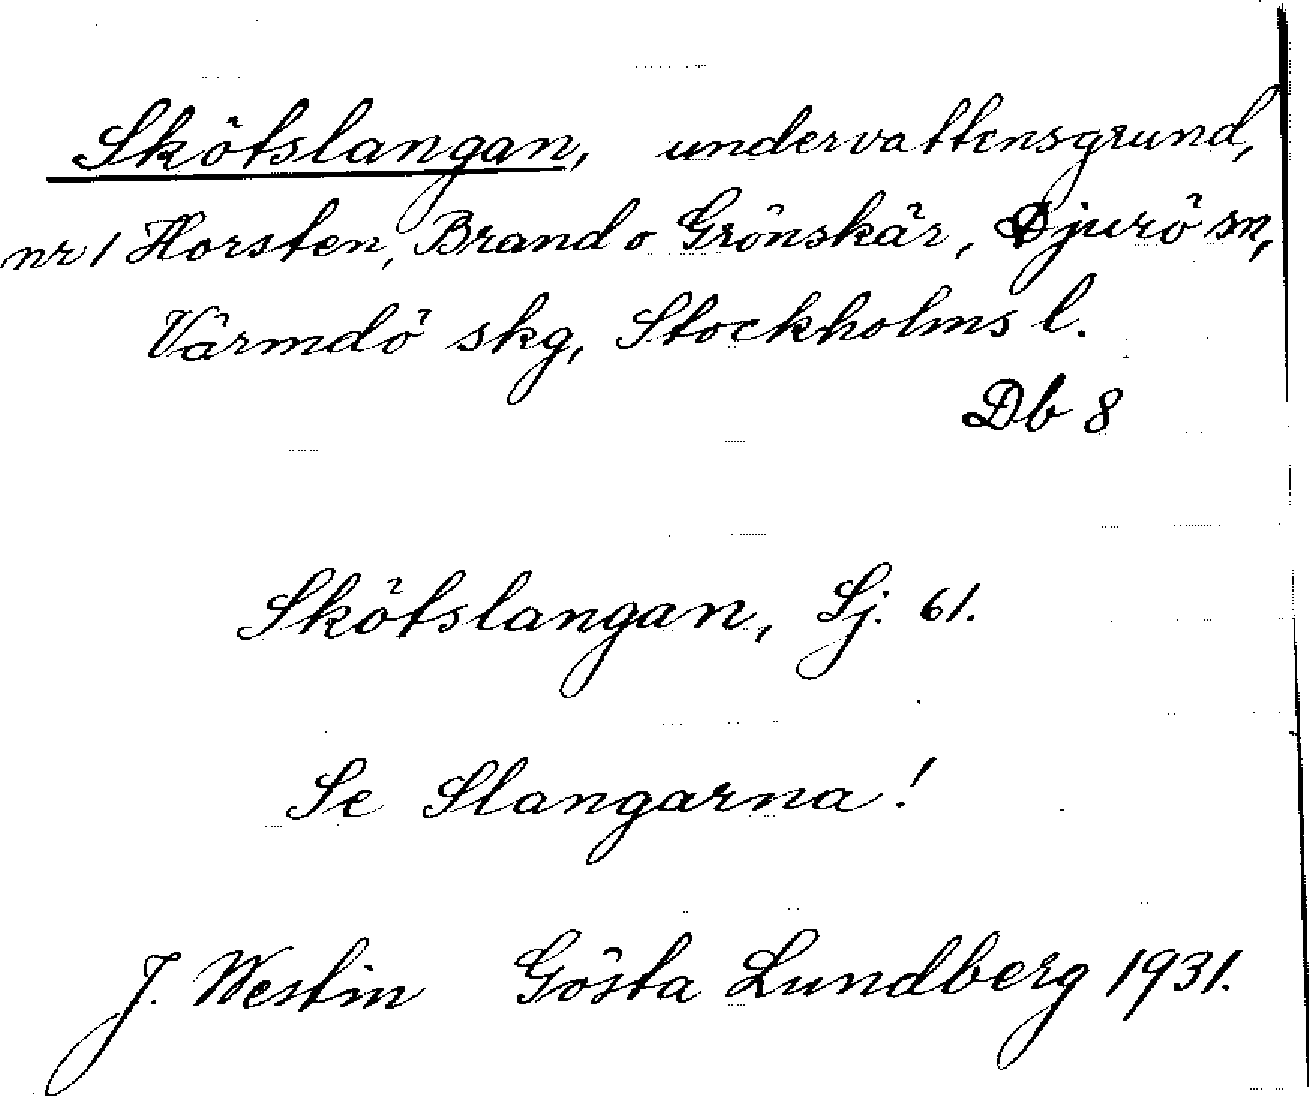 Skötslangan, undervattensgrund,
nr 1 Horsten, Brand o Grönskär, Djurö sn,
Värmdö skg, Stockholms l.
Db 8
Skötslangan, Sj. 61.
Se Slangarna!
J. Westin Gösta Lundberg 1931.